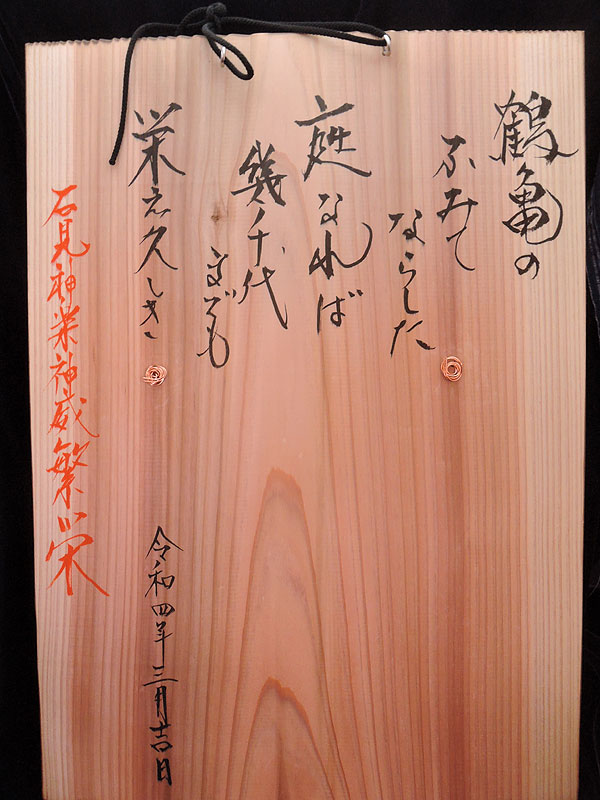 鶴亀の
ふみて
ならした
庭なれば
幾千代
までも
栄え久しき
令和四年三月吉日
石見神楽神威繁栄